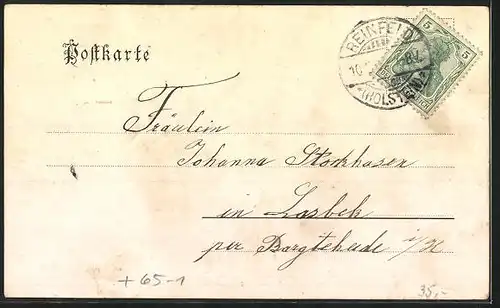 Postkarte
REINFELD
(HOLSTEIN)
10
8V.
5 5
Fräulein
Johanna Storkhaser
in Lasbek
per Bargteheide i/H
+65-1
35,-